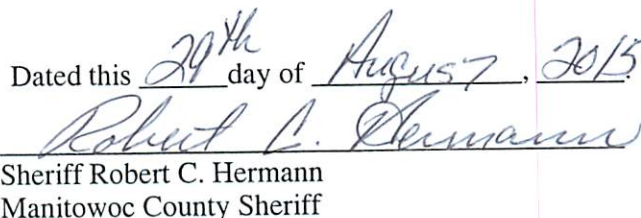 Dated this 29th day of August, 2015.
Robert C. Hermann
Sheriff Robert C. Hermann
Manitowoc County Sheriff